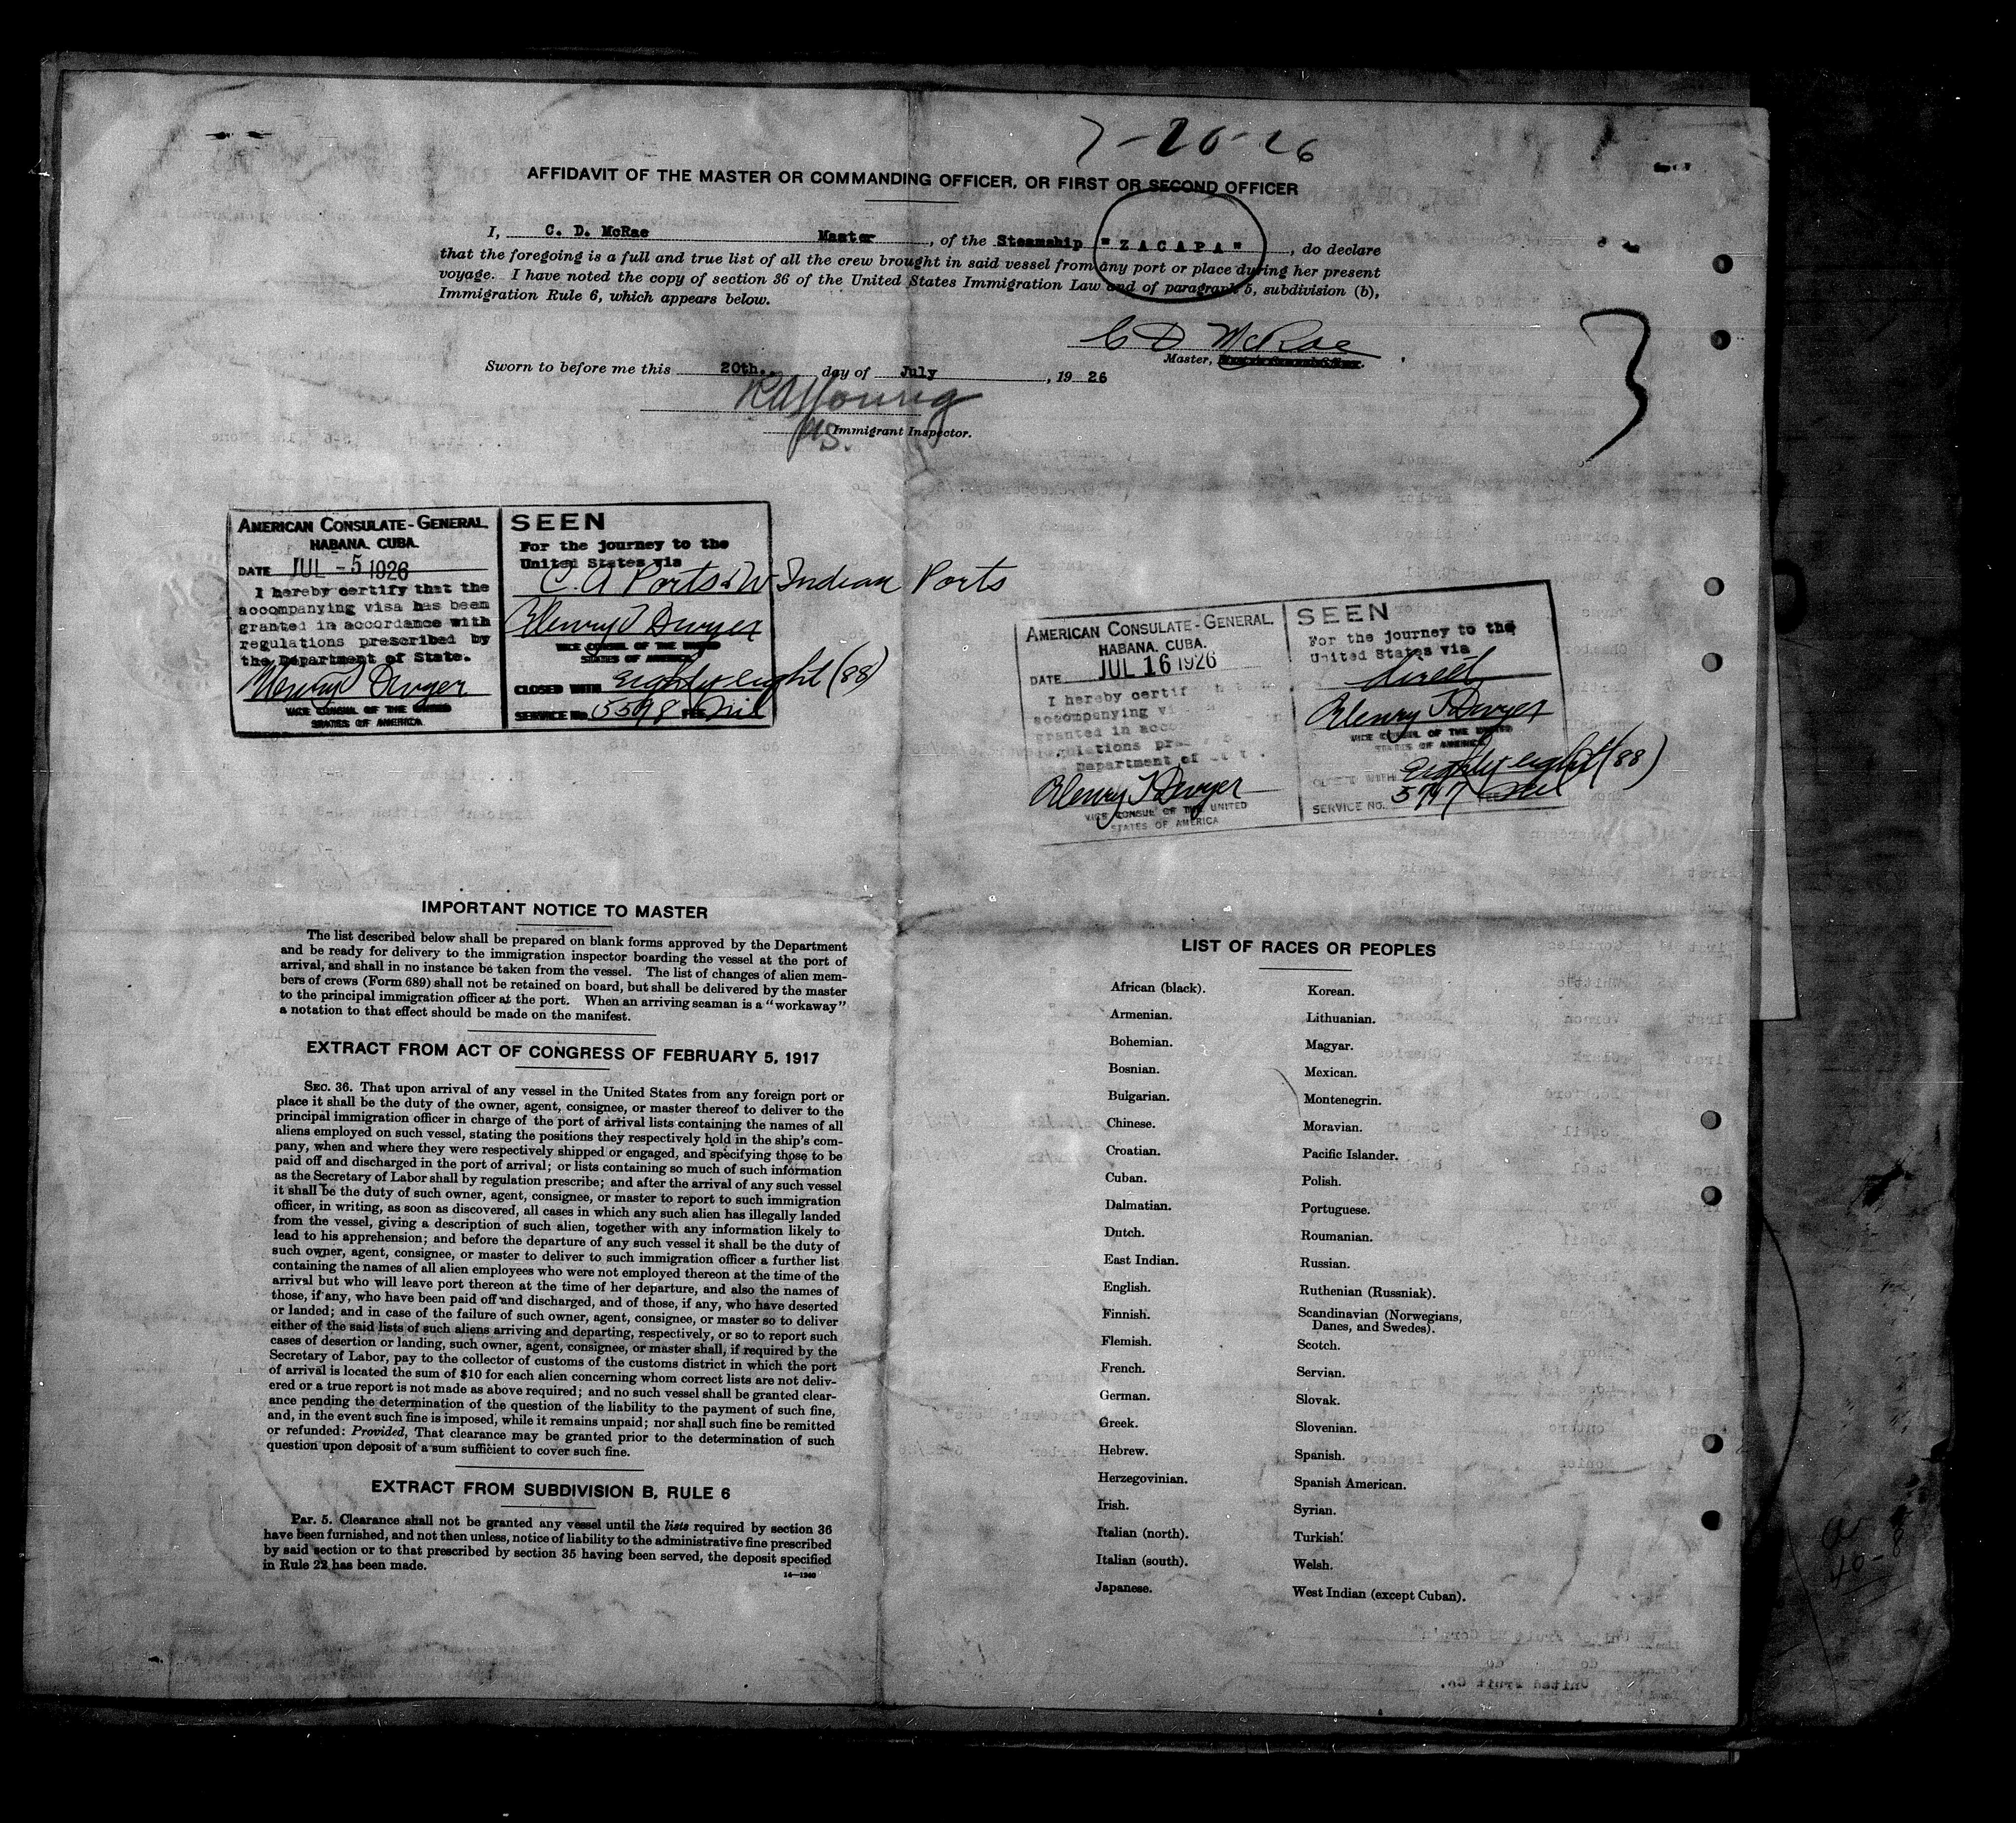 7-20-26
AFFIDAVIT OF THE MASTER OR COMMANDING OFFICER, OR FIRST OR SECOND OFFICER
I, C. D. McRae Master, of the Steamship "ZACAPA", do declare
that the foregoing is a full and true list of all the crew brought in said vessel from any port or place during her present
voyage. I have noted the copy of section 36 of the United States Immigration Law and of paragraph 5, subdivision (b),
Immigration Rule 6, which appears below.
C D McRae
Master,
Sworn to before me this 20th. day of July, 19 26
Immigrant Inspector.
3
AMERICAN CONSULATE-GENERAL.
HABANA. CUBA.
DATE JUL -5 1926
I hereby certify that the
accompanying visa has been
granted in accordance with
regulations prescribed by
the Department of State.
Henry T Dwyer
VICE CONSUL OF THE UNITED
STATES OF AMERICA
SEEN
For the journey to the
United States via
C. A Ports & W Indian Ports
Henry T Dwyer
VICE CONSUL OF THE UNITED
STATES OF AMERICA
CLOSED WITH Eighty eight (88)
SERVICE No. 5598 FEE Nil
AMERICAN CONSULATE-GENERAL.
HABANA. CUBA.
DATE JUL 16 1926
I hereby certif
accompanying vi
granted in acc
regulations pr
Department of
Henry T Dwyer
VICE CONSUL OF THE UNITED
STATES OF AMERICA
SEEN
For the journey to the
United States via
direct
Henry T Dwyer
VICE CONSUL OF THE UNITED
STATES OF AMERICA
WITH Eighty eight (88)
SERVICE NO. 5747 FEE Nil
IMPORTANT NOTICE TO MASTER
The list described below shall be prepared on blank forms approved by the Department
and be ready for delivery to the immigration inspector boarding the vessel at the port of
arrival, and shall in no instance be taken from the vessel. The list of changes of alien mem-
bers of crews (Form 689) shall not be retained on board, but shall be delivered by the master
to the principal immigration officer at the port. When an arriving seaman is a "workaway"
a notation to that effect should be made on the manifest.
EXTRACT FROM ACT OF CONGRESS OF FEBRUARY 5, 1917
SEC. 36. That upon arrival of any vessel in the United States from any foreign port or
place it shall be the duty of the owner, agent, consignee, or master thereof to deliver to the
principal immigration officer in charge of the port of arrival lists containing the names of all
aliens employed on such vessel, stating the positions they respectively hold in the ship's com-
pany, when and where they were respectively shipped or engaged, and specifying those to be
paid off and discharged in the port of arrival; or lists containing so much of such information
as the Secretary of Labor shall by regulation prescribe; and after the arrival of any such vessel
it shall be the duty of such owner, agent, consignee, or master to report to such immigration
officer, in writing, as soon as discovered, all cases in which any such alien has illegally landed
from the vessel, giving a description of such alien, together with any information likely to
lead to his apprehension; and before the departure of any such vessel it shall be the duty of
such owner, agent, consignee, or master to deliver to such immigration officer a further list
containing the names of all alien employees who were not employed thereon at the time of the
arrival but who will leave port thereon at the time of her departure, and also the names of
those, if any, who have been paid off and discharged, and of those, if any, who have deserted
or landed; and in case of the failure of such owner, agent, consignee, or master so to deliver
either of the said lists of such aliens arriving and departing, respectively, or so to report such
cases of desertion or landing, such owner, agent, consignee, or master shall, if required by the
Secretary of Labor, pay to the collector of customs of the customs district in which the port
of arrival is located the sum of $10 for each alien concerning whom correct lists are not deliv-
ered or a true report is not made as above required; and no such vessel shall be granted clear-
ance pending the determination of the question of the liability to the payment of such fine,
and, in the event such fine is imposed, while it remains unpaid; nor shall such fine be remitted
or refunded: Provided, That clearance may be granted prior to the determination of such
question upon deposit of a sum sufficient to cover such fine.
EXTRACT FROM SUBDIVISION B, RULE 6
Par. 5. Clearance shall not be granted any vessel until the lists required by section 36
have been furnished, and not then unless, notice of liability to the administrative fine prescribed
by said section or to that prescribed by section 35 having been served, the deposit specified
in Rule 22 has been made.
14—1240
LIST OF RACES OR PEOPLES
African (black).
Armenian.
Bohemian.
Bosnian.
Bulgarian.
Chinese.
Croatian.
Cuban.
Dalmatian.
Dutch.
East Indian.
English.
Finnish.
Flemish.
French.
German.
Greek.
Hebrew.
Herzegovinian.
Irish.
Italian (north).
Italian (south).
Japanese.
Korean.
Lithuanian.
Magyar.
Mexican.
Montenegrin.
Moravian.
Pacific Islander.
Polish.
Portuguese.
Roumanian.
Russian.
Ruthenian (Russniak).
Scandinavian (Norwegians,
Danes, and Swedes).
Scotch.
Servian.
Slovak.
Slovenian.
Spanish.
Spanish American.
Syrian.
Turkish.
Welsh.
West Indian (except Cuban).